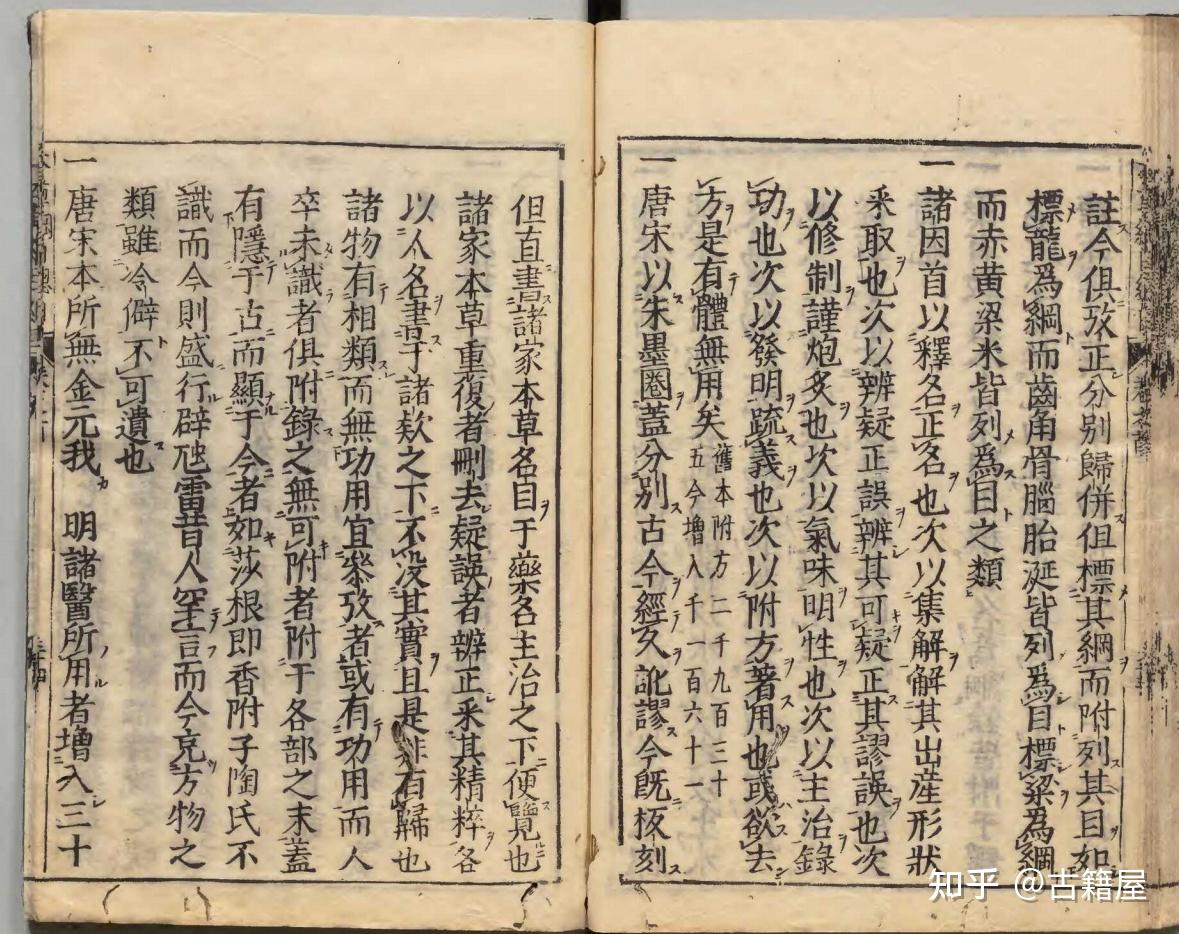 註今俱攷正分別歸併但標其綱而附列其目如
標龍為綱而齒角骨腦胎涎皆列為目標粱為綱
而赤黄粱米皆列為目之類
一諸因首以釋名正名也次以集解解其出産形狀
采取也次以辨疑正誤辨其可疑正其謬誤也次
以修制謹炮炙也次以氣味明性也次以主治錄
功也次以發明疏義也次以附方著用也或欲去
方是有體無用矣舊本附方二千九百三十
五今增入千一百六十一
一唐宋以朱墨圈蓋分別古今經文訛謬今既板刻
但直書諸家本草名目于藥名主治之下便覽也
諸家本草重復者刪去疑誤者辨正采其精粹各
以人名書于諸欵之下不没其實且是非有歸也
諸物有相類而無功用宜參攷者或有功用而人
卒未識者俱附錄之無可附者附于各部之末蓋
有隱于古而顯于今者如莎根即香附子陶氏不
識而今則盛行辟虺雷昔人罕言而今充方物之
類雖冷僻不可遺也
一唐宋本所無金元我 明諸醫所用者增入三十
知乎 @古籍屋